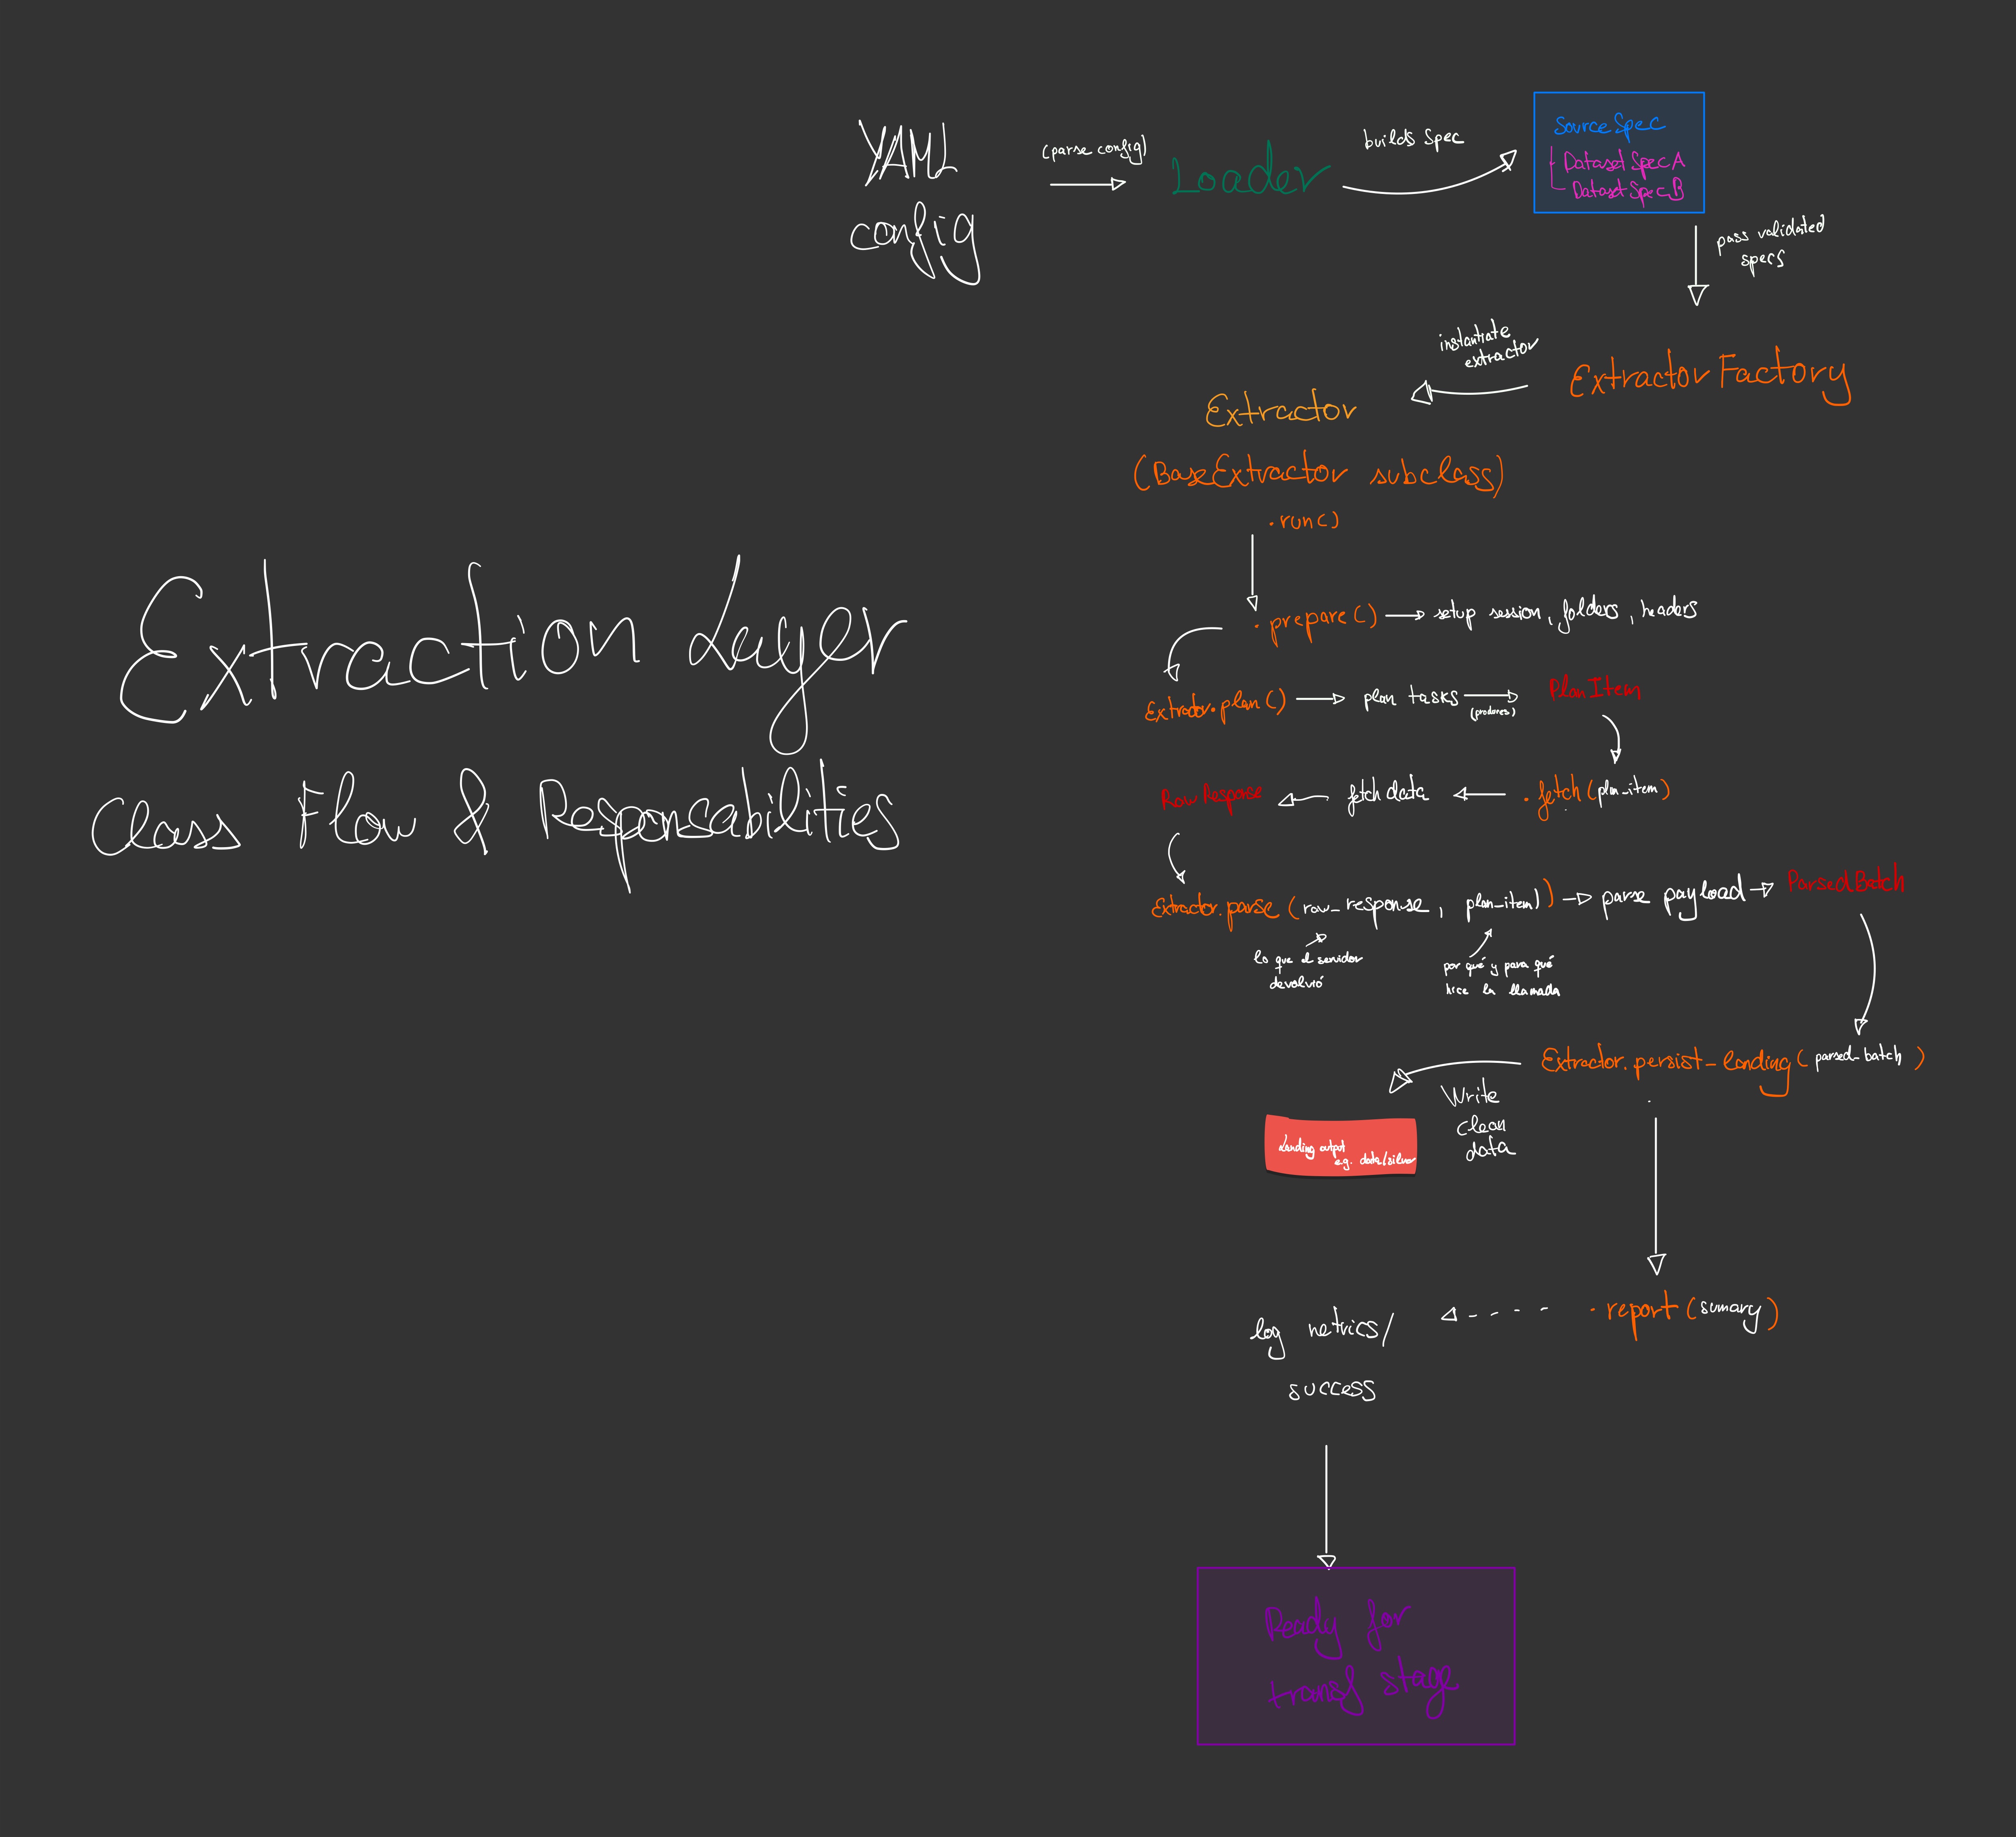 YAML
config
(parse config)
Loader
builds Spec
SourceSpec
DatasetSpec A
DatasetSpec B
pass validated
specs
ExtractorFactory
instantiate
extractor
Extractor
(BaseExtractor subclass)
.run()
.prepare()
setup session, folders, headers
Extractor.plan()
plan tasks
(produces)
PlanItem
.fetch(plan_item)
fetch data
RawResponse
Extractor.parse(raw_response, plan_item))
parse payload
ParsedBatch
lo que el servidor
devolvió
por qué y para qué
hice la llamada
Extractor.persist_landing(parsed_batch)
Write
clean
data
Landing output
e.g. data/silver
.report(sumary)
log metrics/
success
Ready for
transf stage
Extraction Layer
Class Flow & Responsabilities